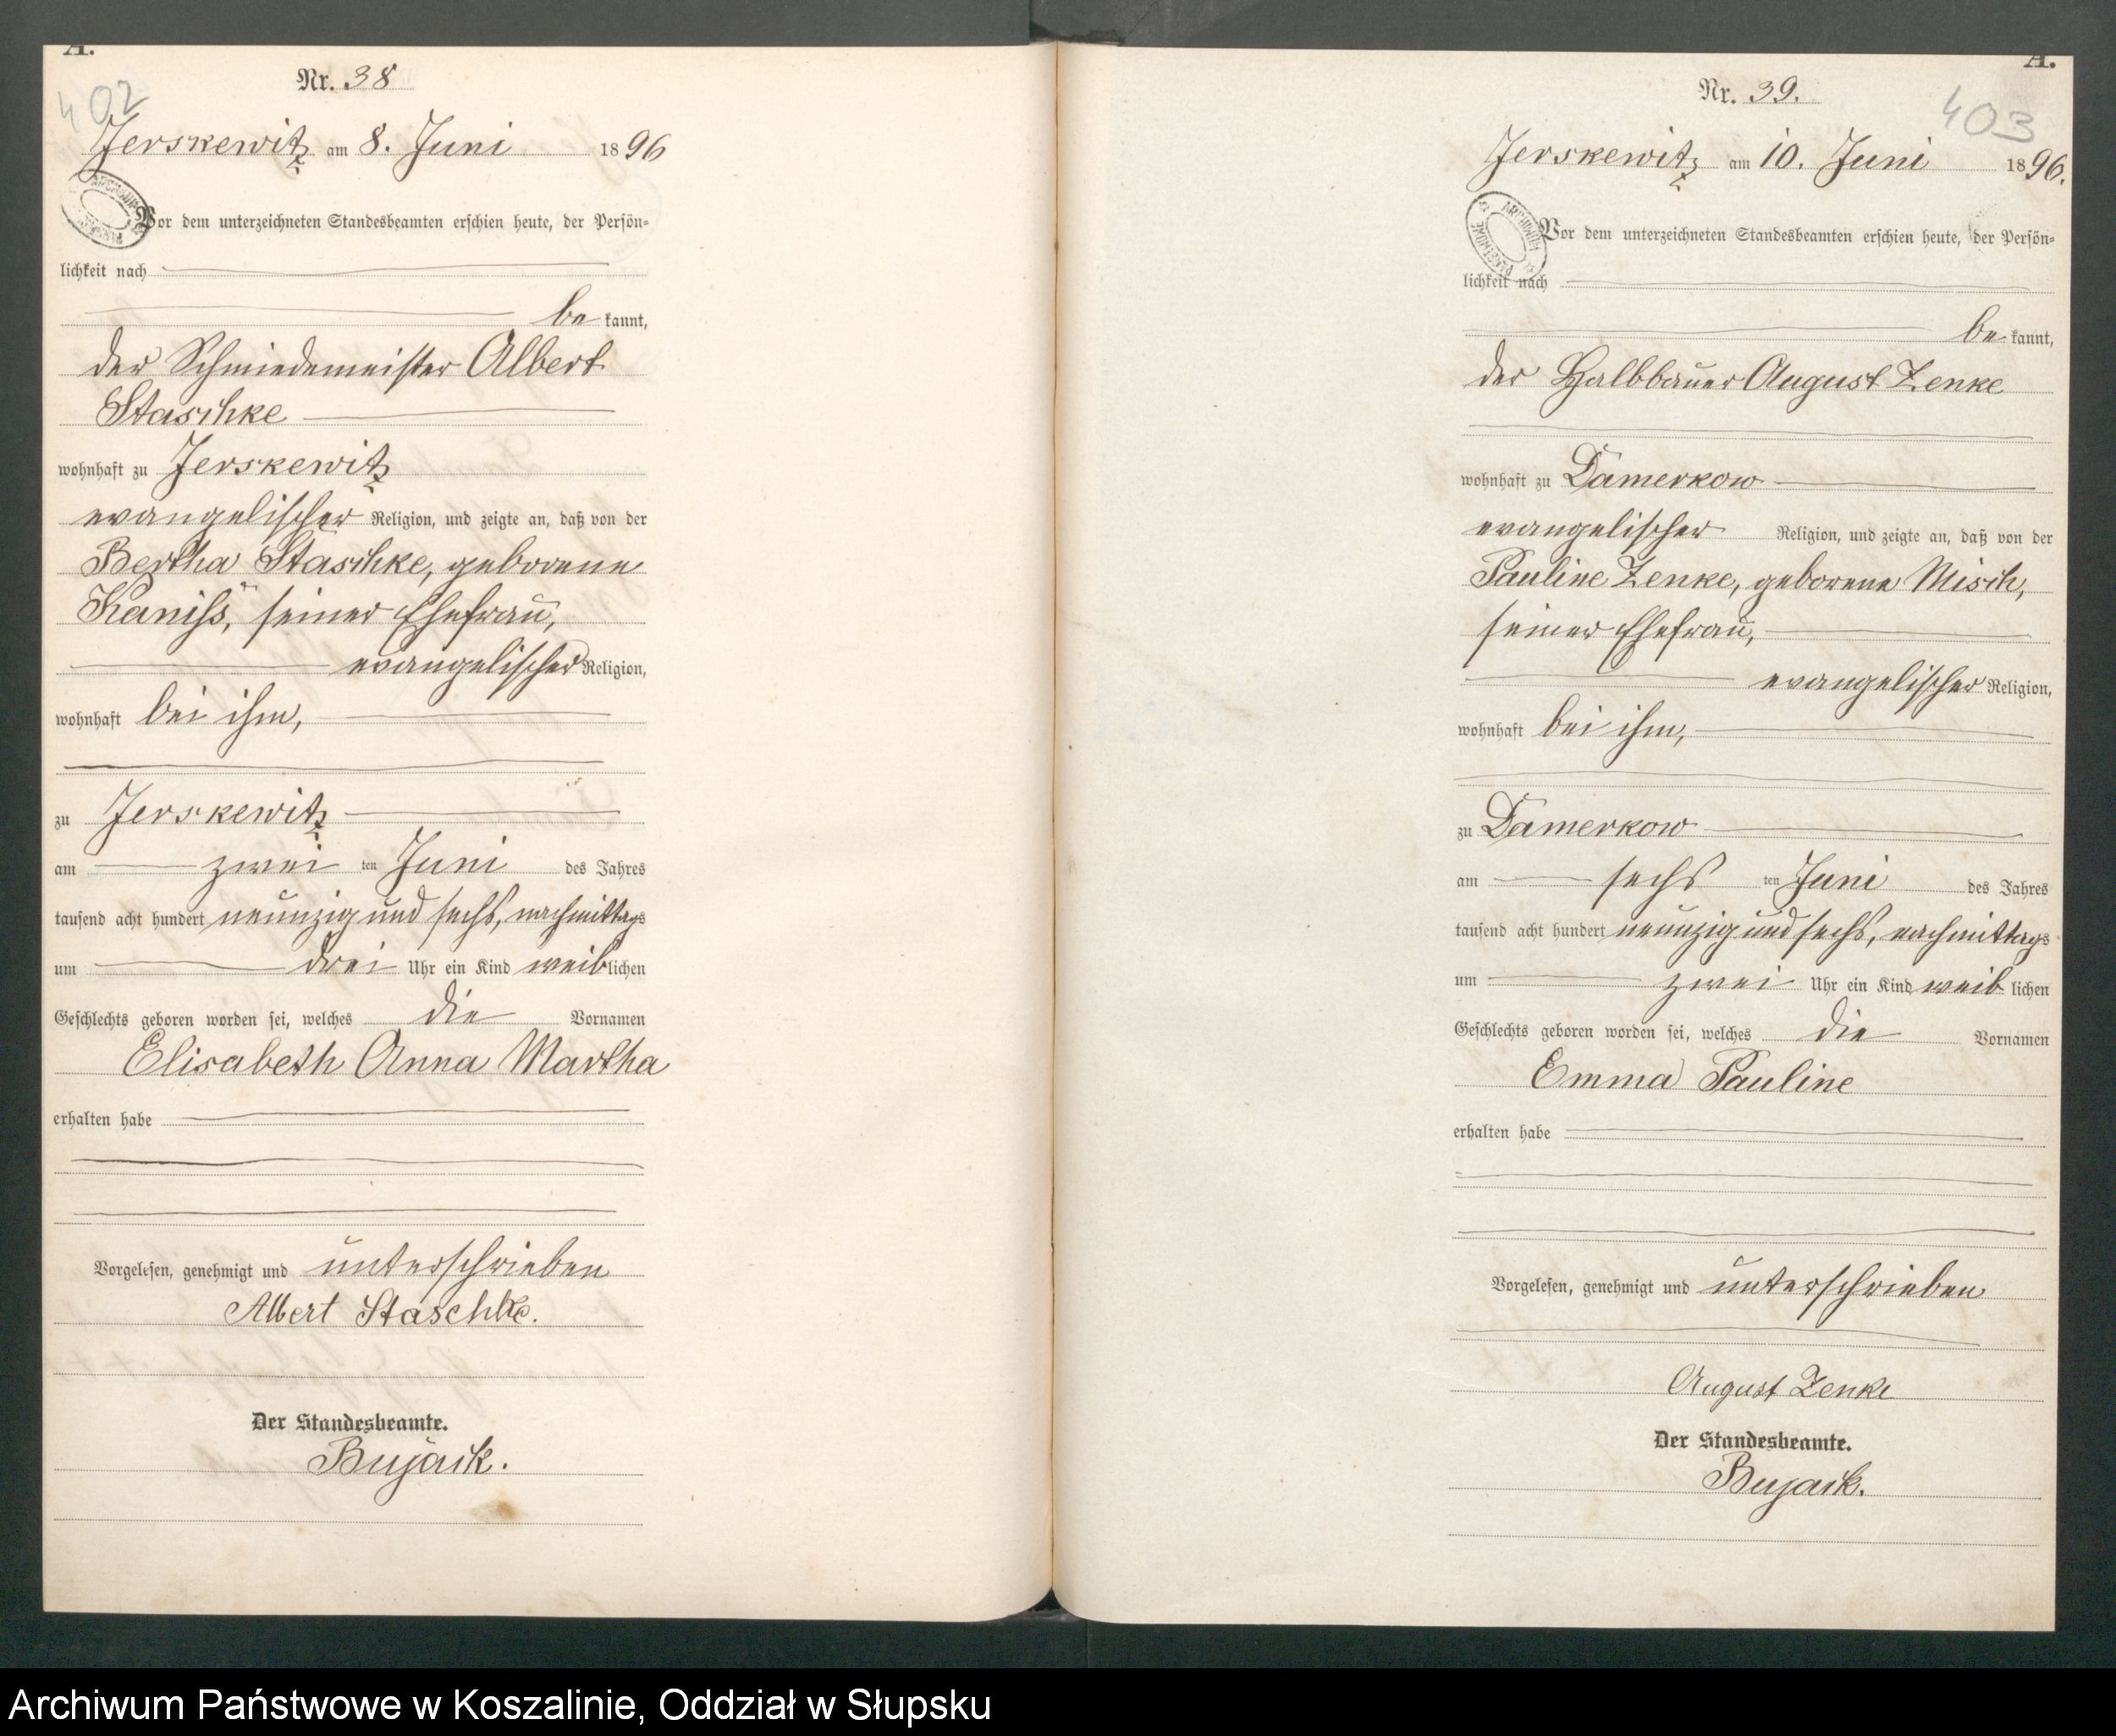 A.
Nr. 38
402
Jerskewitz am 8. Juni 1896
Vor dem unterzeichneten Standesbeamten erschien heute, der Persön-
lichkeit nach
be kannt,
der Schmiedemeister Albert
Staschke
wohnhaft zu Jerskewitz
evangelischer Religion, und zeigte an, daß von der
Bertha Staschke, geborene
Kaniss, seiner Ehefrau,
evangelischer Religion,
wohnhaft bei ihm,
zu Jerskewitz
am zwei ten Juni des Jahres
tausend acht hundert neunzig und sechs, nachmittags
um drei Uhr ein Kind weiblichen
Geschlechts geboren worden sei, welches die Vornamen
Elisabeth Anna Martha
erhalten habe
Vorgelesen, genehmigt und unterschrieben
Albert Staschke.
Der Standesbeamte.
Bujack.
A.
Nr. 39.
403
Jerskewitz am 10. Juni 1896.
ARCHIWUM PAŃSTWOWE
Vor dem unterzeichneten Standesbeamten erschien heute, der Persön-
lichkeit nach
be kannt,
der Halbbauer August Zenke
wohnhaft zu Damerkow
evangelischer Religion, und zeigte an, daß von der
Pauline Zenke, geborene Misch,
seiner Ehefrau,
evangelischer Religion,
wohnhaft bei ihm,
zu Damerkow
am sechs ten Juni des Jahres
tausend acht hundert neunzig und sechs, nachmittags
um zwei Uhr ein Kind weib lichen
Geschlechts geboren worden sei, welches die Vornamen
Emma Pauline
erhalten habe
Vorgelesen, genehmigt und unterschrieben
August Zenke
Der Standesbeamte.
Bujack.
Archiwum Państwowe w Koszalinie, Oddział w Słupsku